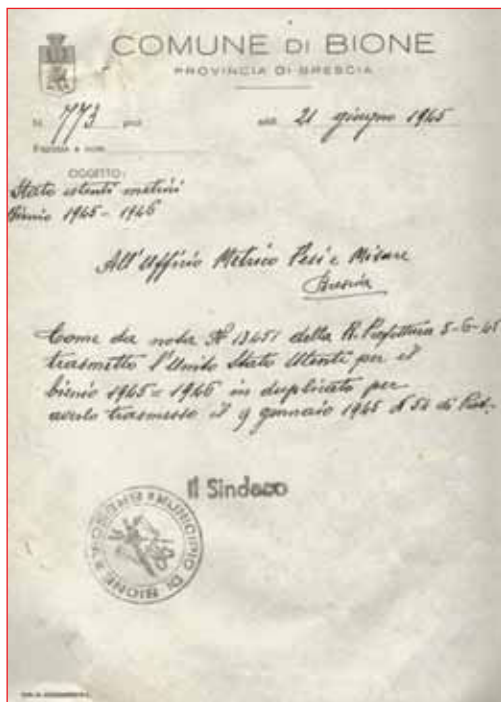 COMUNE DI BIONE
PROVINCIA DI BRESCIA
N. 773 prot. addì 21 giugno 1945
OGGETTO:
Stato utenti metrici
Biennio 1945 - 1946
All'Ufficio Metrico Pesi e Misure
Brescia
Come da nota N° 13451 della R. Prefettura 5-6-45
trasmetto l'Unito Stato Utenti per il
biennio 1945 = 1946 in duplicato per
averlo trasmesso il 9 gennaio 1945 N 54 di Prot.
Il Sindaco
MUNICIPIO DI BIONE